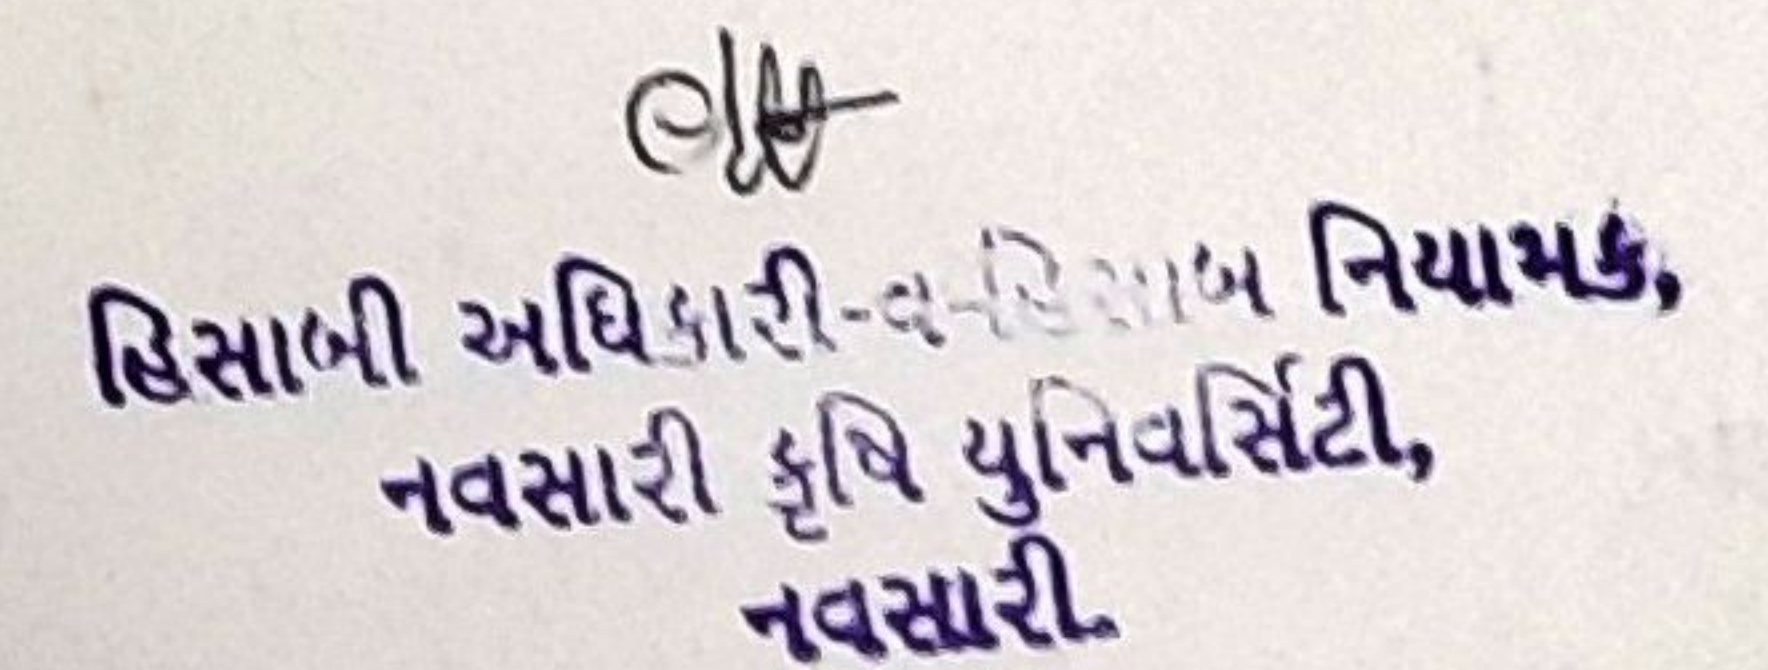 હિસાબી અધિકારી-વ-હિસાબ નિયામક,
નવસારી કૃષિ યુનિવર્સિટી,
નવસારી.